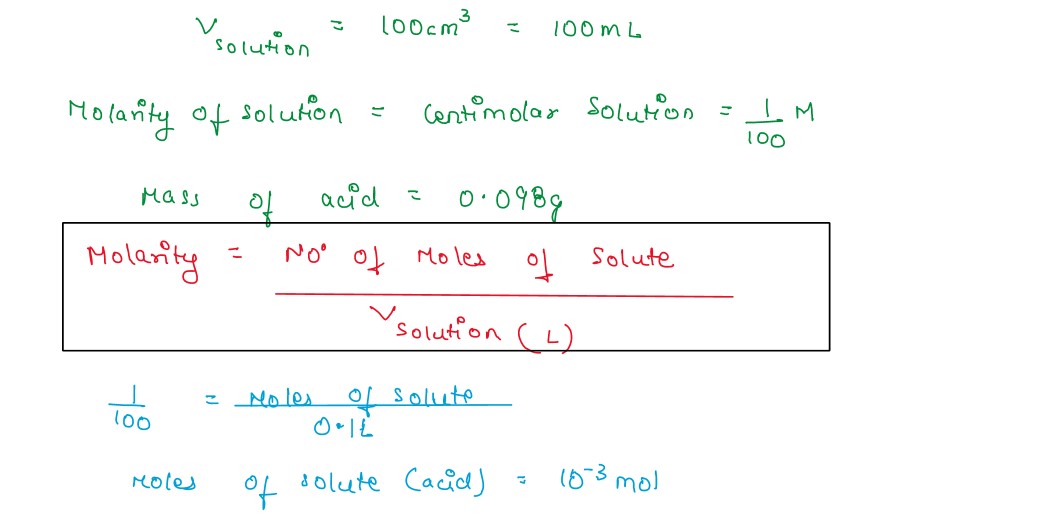 V solution = 100cm³ = 100mL
Molarity of solution = Centimolar Solution = 1/100 M
Mass of acid = 0.098g
Molarity = No° of Moles of Solute / V solution (L)
1/100 = Moles of solute / 0.1L
Moles of solute (acid) = 10⁻³ mol